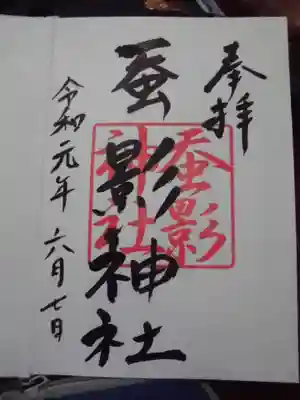 奉拝
蚕影神社
蚕影
神社
令和元年六月七日